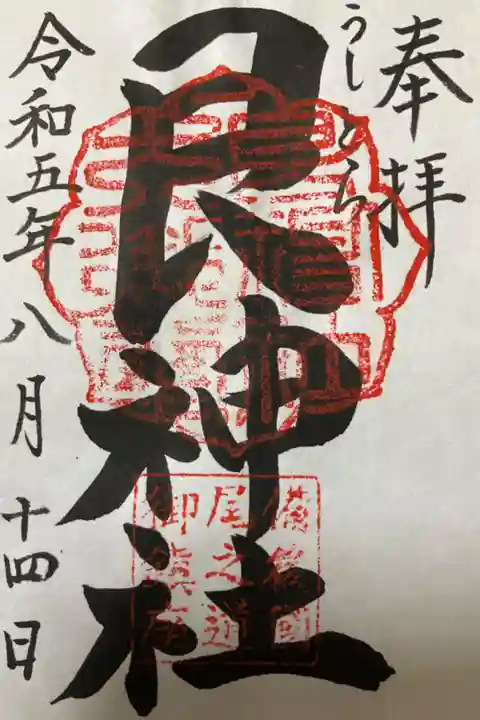 奉拝
うしとら
艮神社
令和五年八月十四日
備後國
尾之道
御鎮座